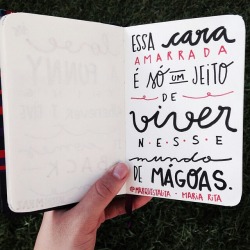 ESSA cara
AMARRADA
É SÓ UM JEITO
DE
viver
N.E.S.S.E
mundo
DE MÁGOAS.
@MARQUESTALITA - MARIA RITA